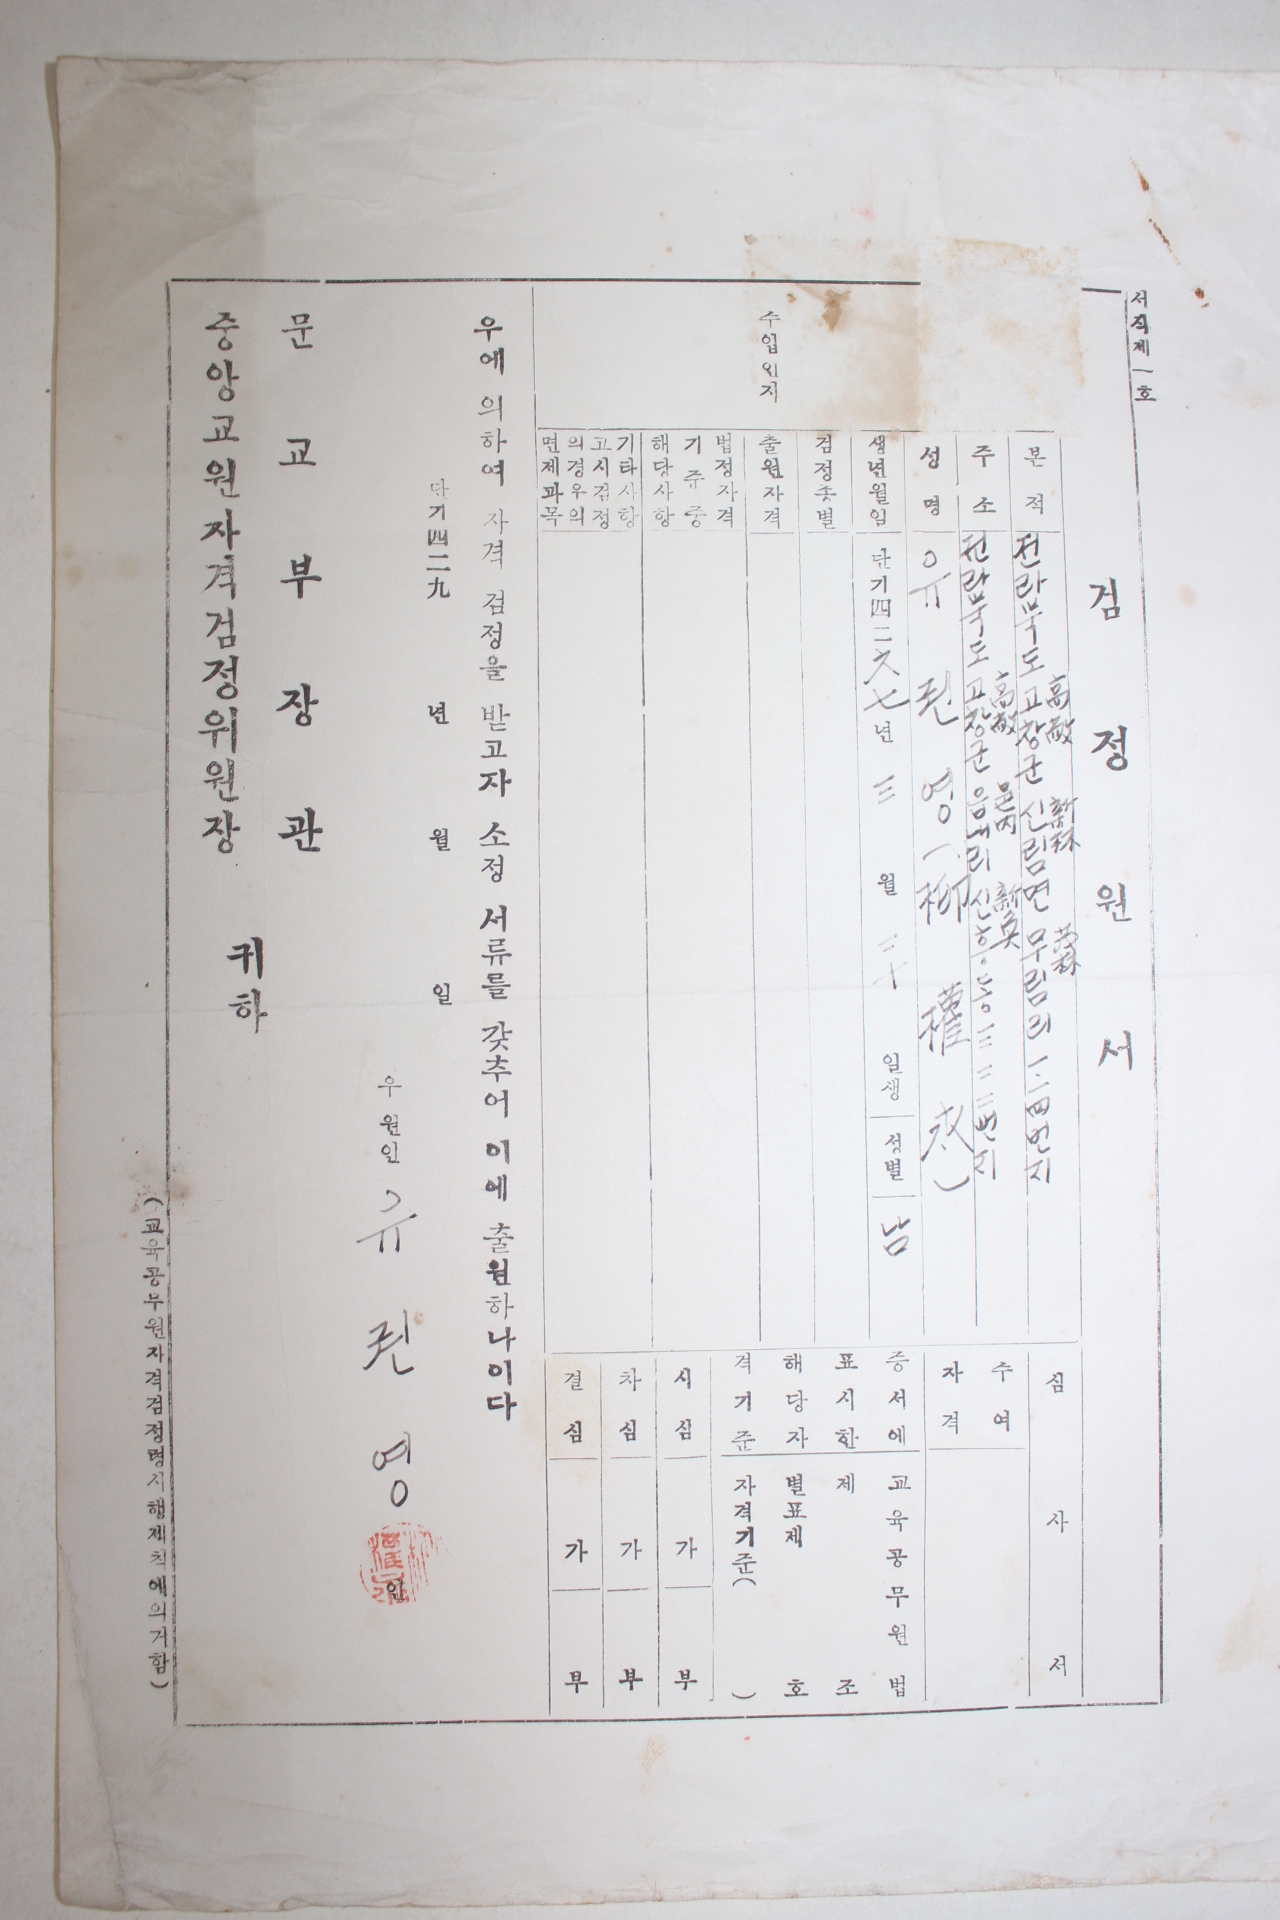 서식제一호
검정원서
본적
전라북도 고창군 신림면 무림리 一二四번지
高敞 新林 茂林
주소
전라북도 고창군 읍내리 신흥동 三二二번지
高敞 邑內
성명
유권영(柳權永)
생년월일
단기四二六七년 三월 二十일생
성별
남
검정종별
출원자격
법정자격
기준중
해당사항
기타사항
고시검정
의경우의
면제과목
수입인지
심사서
수여
자격
증서에
표시한
해당자
격기준
교육공무원법
제 조
별표제 호
자격기준( )
시심 가 부
차심 가 부
결심 가 부
우에 의하여 자격 검정을 받고자 소정 서류를 갖추어 이에 출원하나이다
단기四二九 년 월 일
우 원인 유권영 인
문교부장관
중앙교원자격검정위원장
귀하
(교육공무원자격검정령시행세칙에의거함)